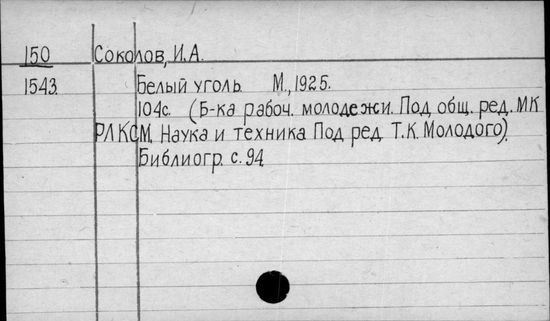 150 Соколов, И.А.
1543. Белый уголь. М., 1925.
104с. (Б-ка рабоч. молодежи. Под общ. ред. МК
РЛКСМ. Наука и техника Под ред. Т.К. Молодого).
Библиогр. с. 94.